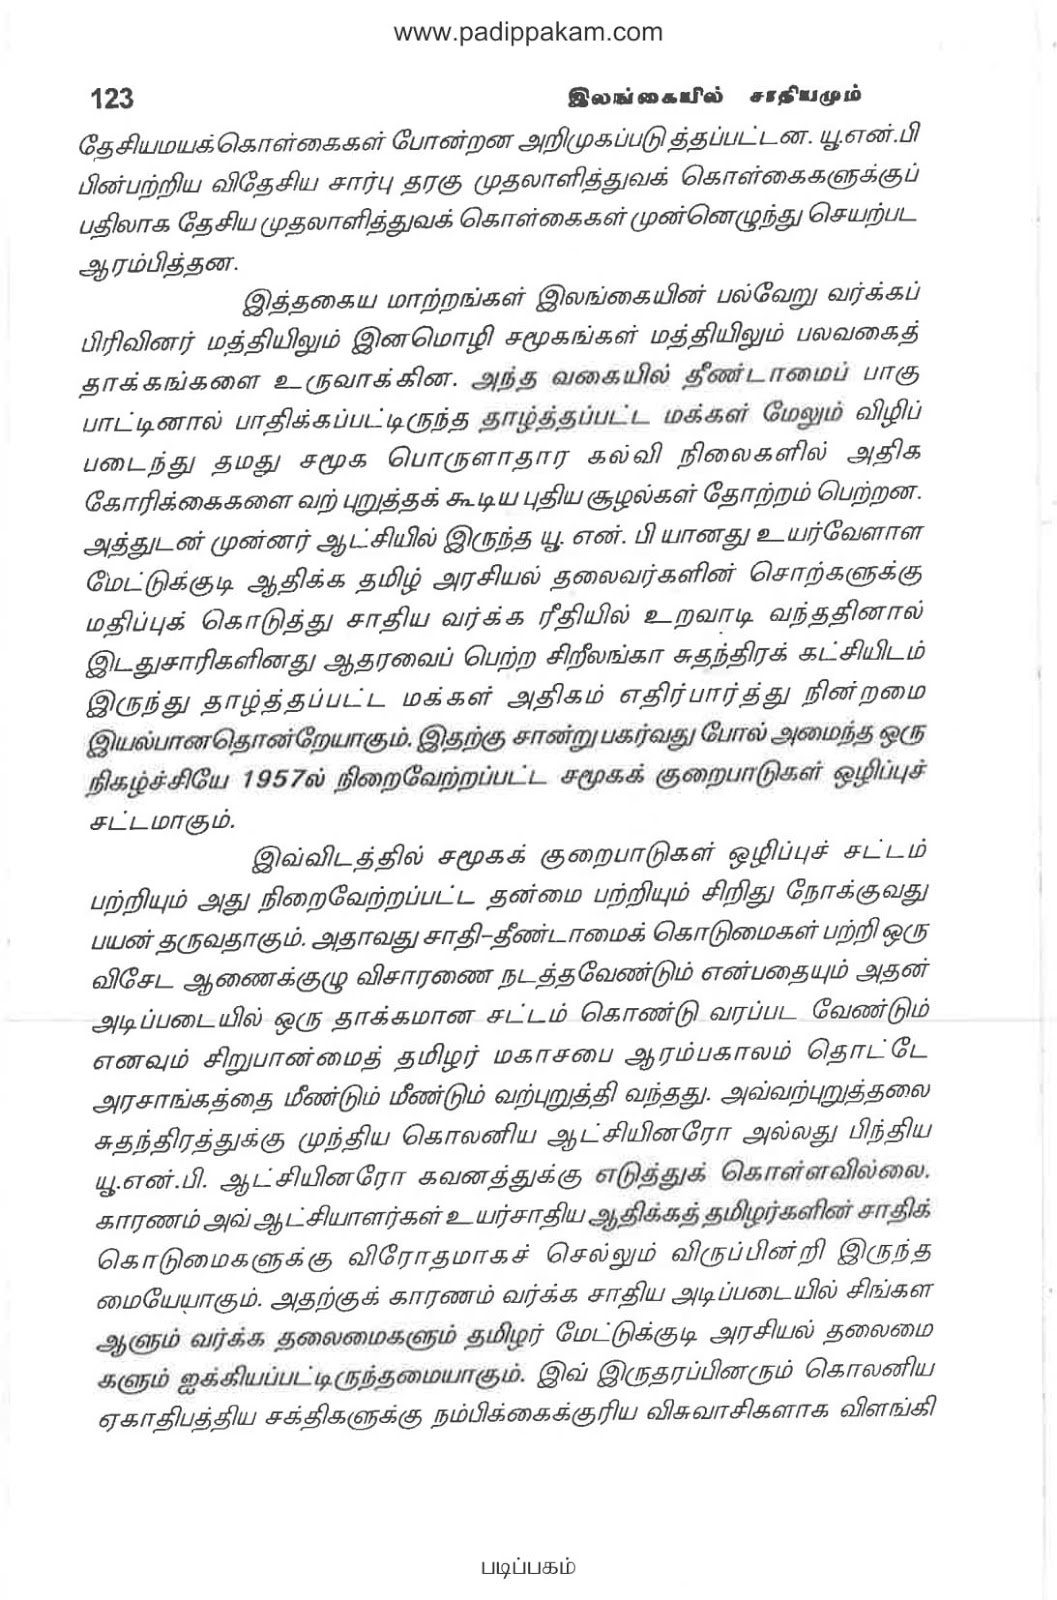 www.padippakam.com
123 இலங்கையில் சாதியமும்
தேசியமயக்கொள்கைகள் போன்றன அறிமுகப்படு த்தப்பட்டன. யூ.என்.பி
பின்பற்றிய விதேசிய சார்பு தரகு முதலாளித்துவக் கொள்கைகளுக்குப்
பதிலாக தேசிய முதலாளித்துவக் கொள்கைகள் முன்னெழுந்து செயற்பட
ஆரம்பித்தன.
இத்தகைய மாற்றங்கள் இலங்கையின் பல்வேறு வர்க்கப்
பிரிவினர் மத்தியிலும் இனமொழி சமூகங்கள் மத்தியிலும் பலவகைத்
தாக்கங்களை உருவாக்கின. அந்த வகையில் தீண்டாமைப் பாகு
பாட்டினால் பாதிக்கப்பட்டிருந்த தாழ்த்தப்பட்ட மக்கள் மேலும் விழிப்
படைந்து தமது சமூக பொருளாதார கல்வி நிலைகளில் அதிக
கோரிக்கைகளை வற் புறுத்தக் கூடிய புதிய சூழல்கள் தோற்றம் பெற்றன.
அத்துடன் முன்னர் ஆட்சியில் இருந்த யூ. என். பி யானது உயர்வேளாள
மேட்டுக்குடி ஆதிக்க தமிழ் அரசியல் தலைவர்களின் சொற்களுக்கு
மதிப்புக் கொடுத்து சாதிய வர்க்க ரீதியில் உறவாடி வந்ததினால்
இடதுசாரிகளினது ஆதரவைப் பெற்ற சிறீலங்கா சுதந்திரக் கட்சியிடம்
இருந்து தாழ்த்தப்பட்ட மக்கள் அதிகம் எதிர்பார்த்து நின்றமை
இயல்பானதொன்றேயாகும். இதற்கு சான்று பகர்வது போல் அமைந்த ஒரு
நிகழ்ச்சியே 1957ல் நிறைவேற்றப்பட்ட சமூகக் குறைபாடுகள் ஒழிப்புச்
சட்டமாகும்.
இவ்விடத்தில் சமூகக் குறைபாடுகள் ஒழிப்புச் சட்டம்
பற்றியும் அது நிறைவேற்றப்பட்ட தன்மை பற்றியும் சிறிது நோக்குவது
பயன் தருவதாகும். அதாவது சாதி-தீண்டாமைக் கொடுமைகள் பற்றி ஒரு
விசேட ஆணைக்குழு விசாரணை நடத்தவேண்டும் என்பதையும் அதன்
அடிப்படையில் ஒரு தாக்கமான சட்டம் கொண்டு வரப்பட வேண்டும்
எனவும் சிறுபான்மைத் தமிழர் மகாசபை ஆரம்பகாலம் தொட்டே
அரசாங்கத்தை மீண்டும் மீண்டும் வற்புறுத்தி வந்தது. அவ்வற்புறுத்தலை
சுதந்திரத்துக்கு முந்திய கொலனிய ஆட்சியினரோ அல்லது பிந்திய
யூ.என்.பி. ஆட்சியினரோ கவனத்துக்கு எடுத்துக் கொள்ளவில்லை.
காரணம் அவ் ஆட்சியாளர்கள் உயர்சாதிய ஆதிக்கத் தமிழர்களின் சாதிக்
கொடுமைகளுக்கு விரோதமாகச் செல்லும் விருப்பின்றி இருந்த
மையேயாகும். அதற்குக் காரணம் வர்க்க சாதிய அடிப்படையில் சிங்கள
ஆளும் வர்க்க தலைமைகளும் தமிழர் மேட்டுக்குடி அரசியல் தலைமை
களும் ஐக்கியப்பட்டிருந்தமையாகும். இவ் இருதரப்பினரும் கொலனிய
ஏகாதிபத்திய சக்திகளுக்கு நம்பிக்கைக்குரிய விசுவாசிகளாக விளங்கி
படிப்பகம்